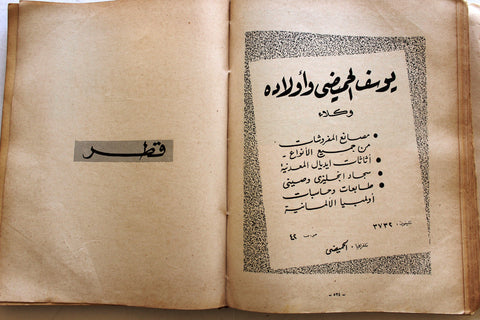 يوسف الحميضي وأولاده
وكلاء
• مصانع المفروشات
من جميع الأنواع -
• أثاثات ايديال المعدنية
• سجاد انجليزي وصيني
• طابعات وحاسبات
أولمبيا الالمانية
تليفون: ٣٧٣٩ ص.ب ٤٢
تلغرافيا: الحميضي
- ٥٢٤ -
قطر